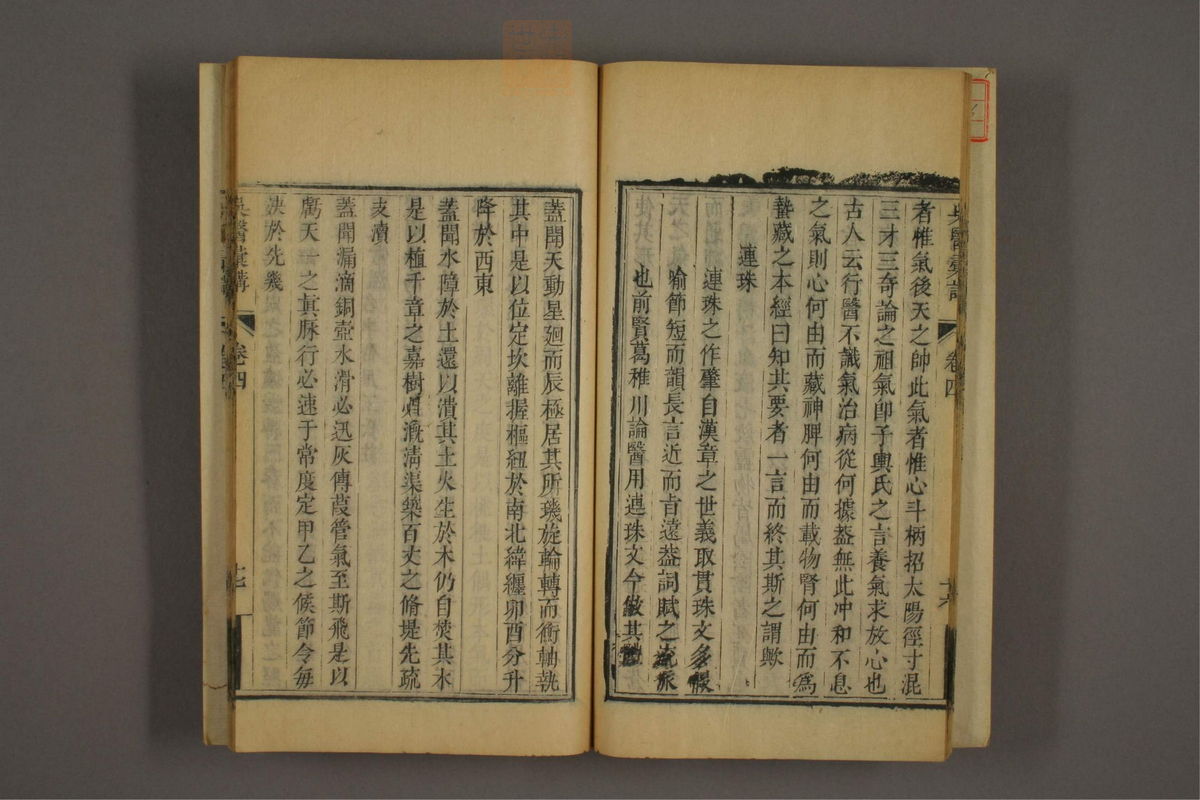 吳醫彙講
卷四
十六
者惟氣後天之帥此氣者惟心斗柄招太陽徑寸混
三才三奇論之祖氣卽子輿氏之言養氣求放心也
古人云行醫不識氣治病從何據葢無此冲和不息
之氣則心何由而藏神脾何由而載物腎何由而爲
蟄藏之本經曰知其要者一言而終其斯之謂歟
連珠
連珠之作肇自漢章之世義取貫珠文多假
喻節短而韻長言近而旨遠葢詞賦之流派
也前賢葛稚川論醫用連珠文今倣其體
蓋聞天動星廻而辰極居其所璣旋輪轉而衡軸執
其中是以位定坎離握樞紐於南北緯纏卯酉分升
降於西東
蓋聞水障於土還以潰其土火生於木仍自焚其木
是以植千章之嘉樹灌漑淸渠築百丈之脩堤先疏
支瀆
蓋聞漏滴銅壺水滑必迅灰傳葭管氣至斯飛是以
膺天一之眞脈行必速于常度定甲乙之候節令每
決於先幾
吳醫彙講
卷四
十七